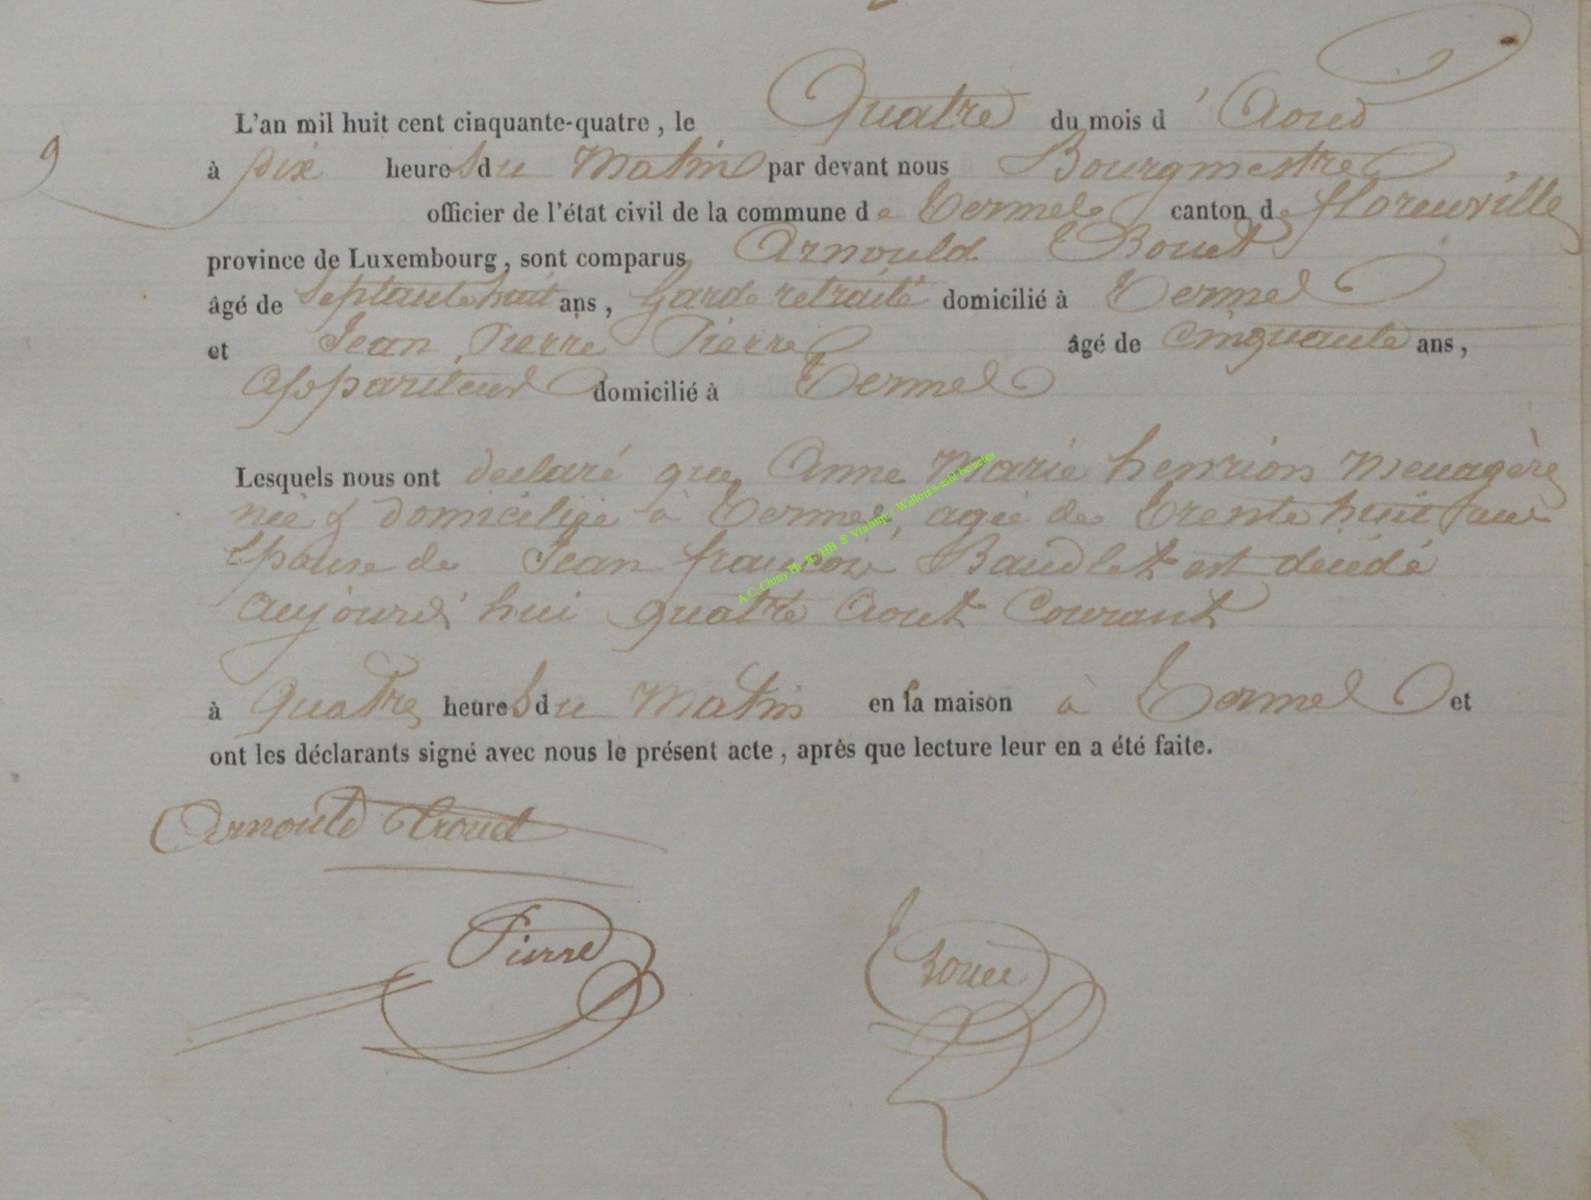 L'an mil huit cent cinquante-quatre, le Quatre du mois d'Aout
9
à dix heures du Matin par devant nous Bourgmestre
officier de l'état civil de la commune de Termes canton de florenville
province de Luxembourg, sont comparus Arnould
âgé de Septante huit ans, Garde retraité domicilié à Termes
et Jean Pierre Pierre âgé de Cinquante ans,
Appariteur domicilié à Termes
Lesquels nous ont declaré que Anne Marie henrion Menagère
née & domiciliée à Termes, agée de Trente huit ans
Epouse de Jean françois Baudlet est décédé
aujourd'hui quatre Aout Courant
à Quatre heures du Matin en sa maison à Termes et
ont les déclarants signé avec nous le présent acte, après que lecture leur en a été faite.
Arnould
Pierre